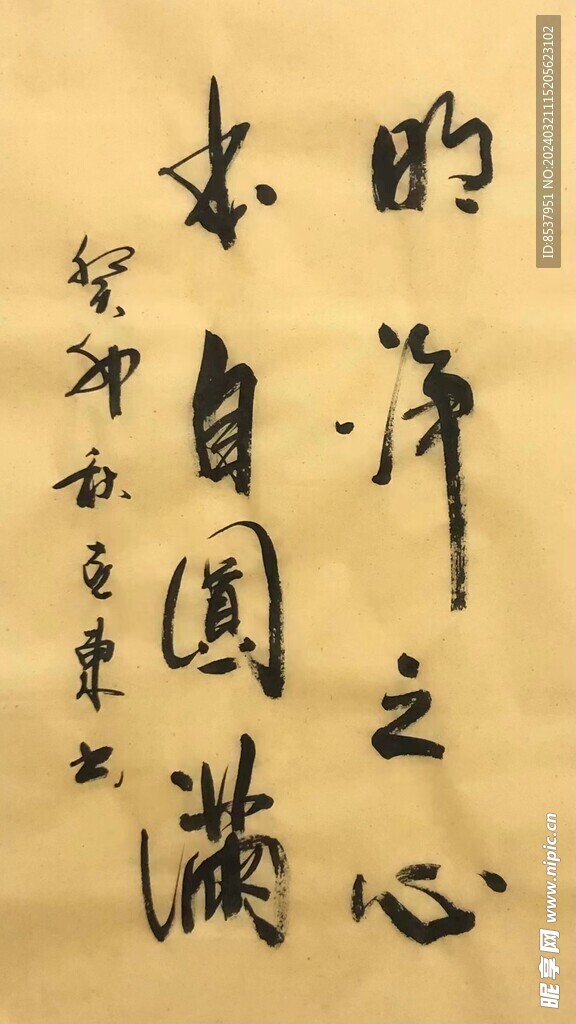 明净之心
本自圆满
癸卯秋亚東书
ID:8537951 NO:20240321115205623102
昵享网 www.nipic.cn